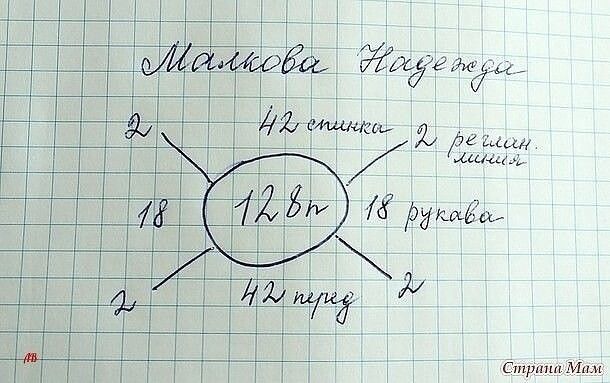 Малкова Надежда
2 42 спинка 2 реглан.
линия
18 128п 18 рукава
2 42 перед 2
МВ
Страна Мам